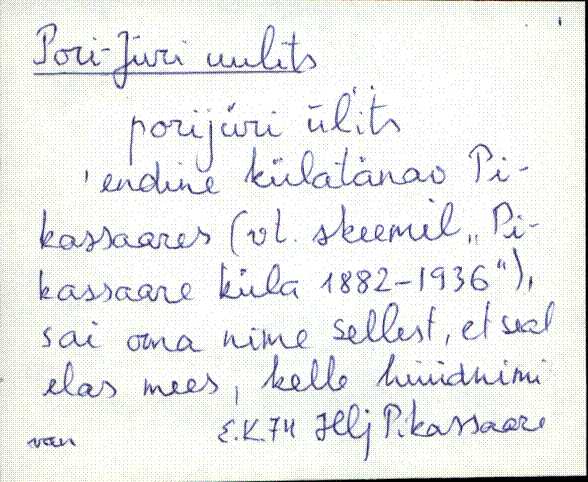 Pori-Jüri uulits
porijüri ül'its
'endine külatänav Pi-
kassaares (vt. skeemil „Pi-
kassaare küla 1882-1936"),
sai oma nime sellest, et seal
elas mees, kelle hüüdnimi
van E.K.74 Hlj Pikassaare